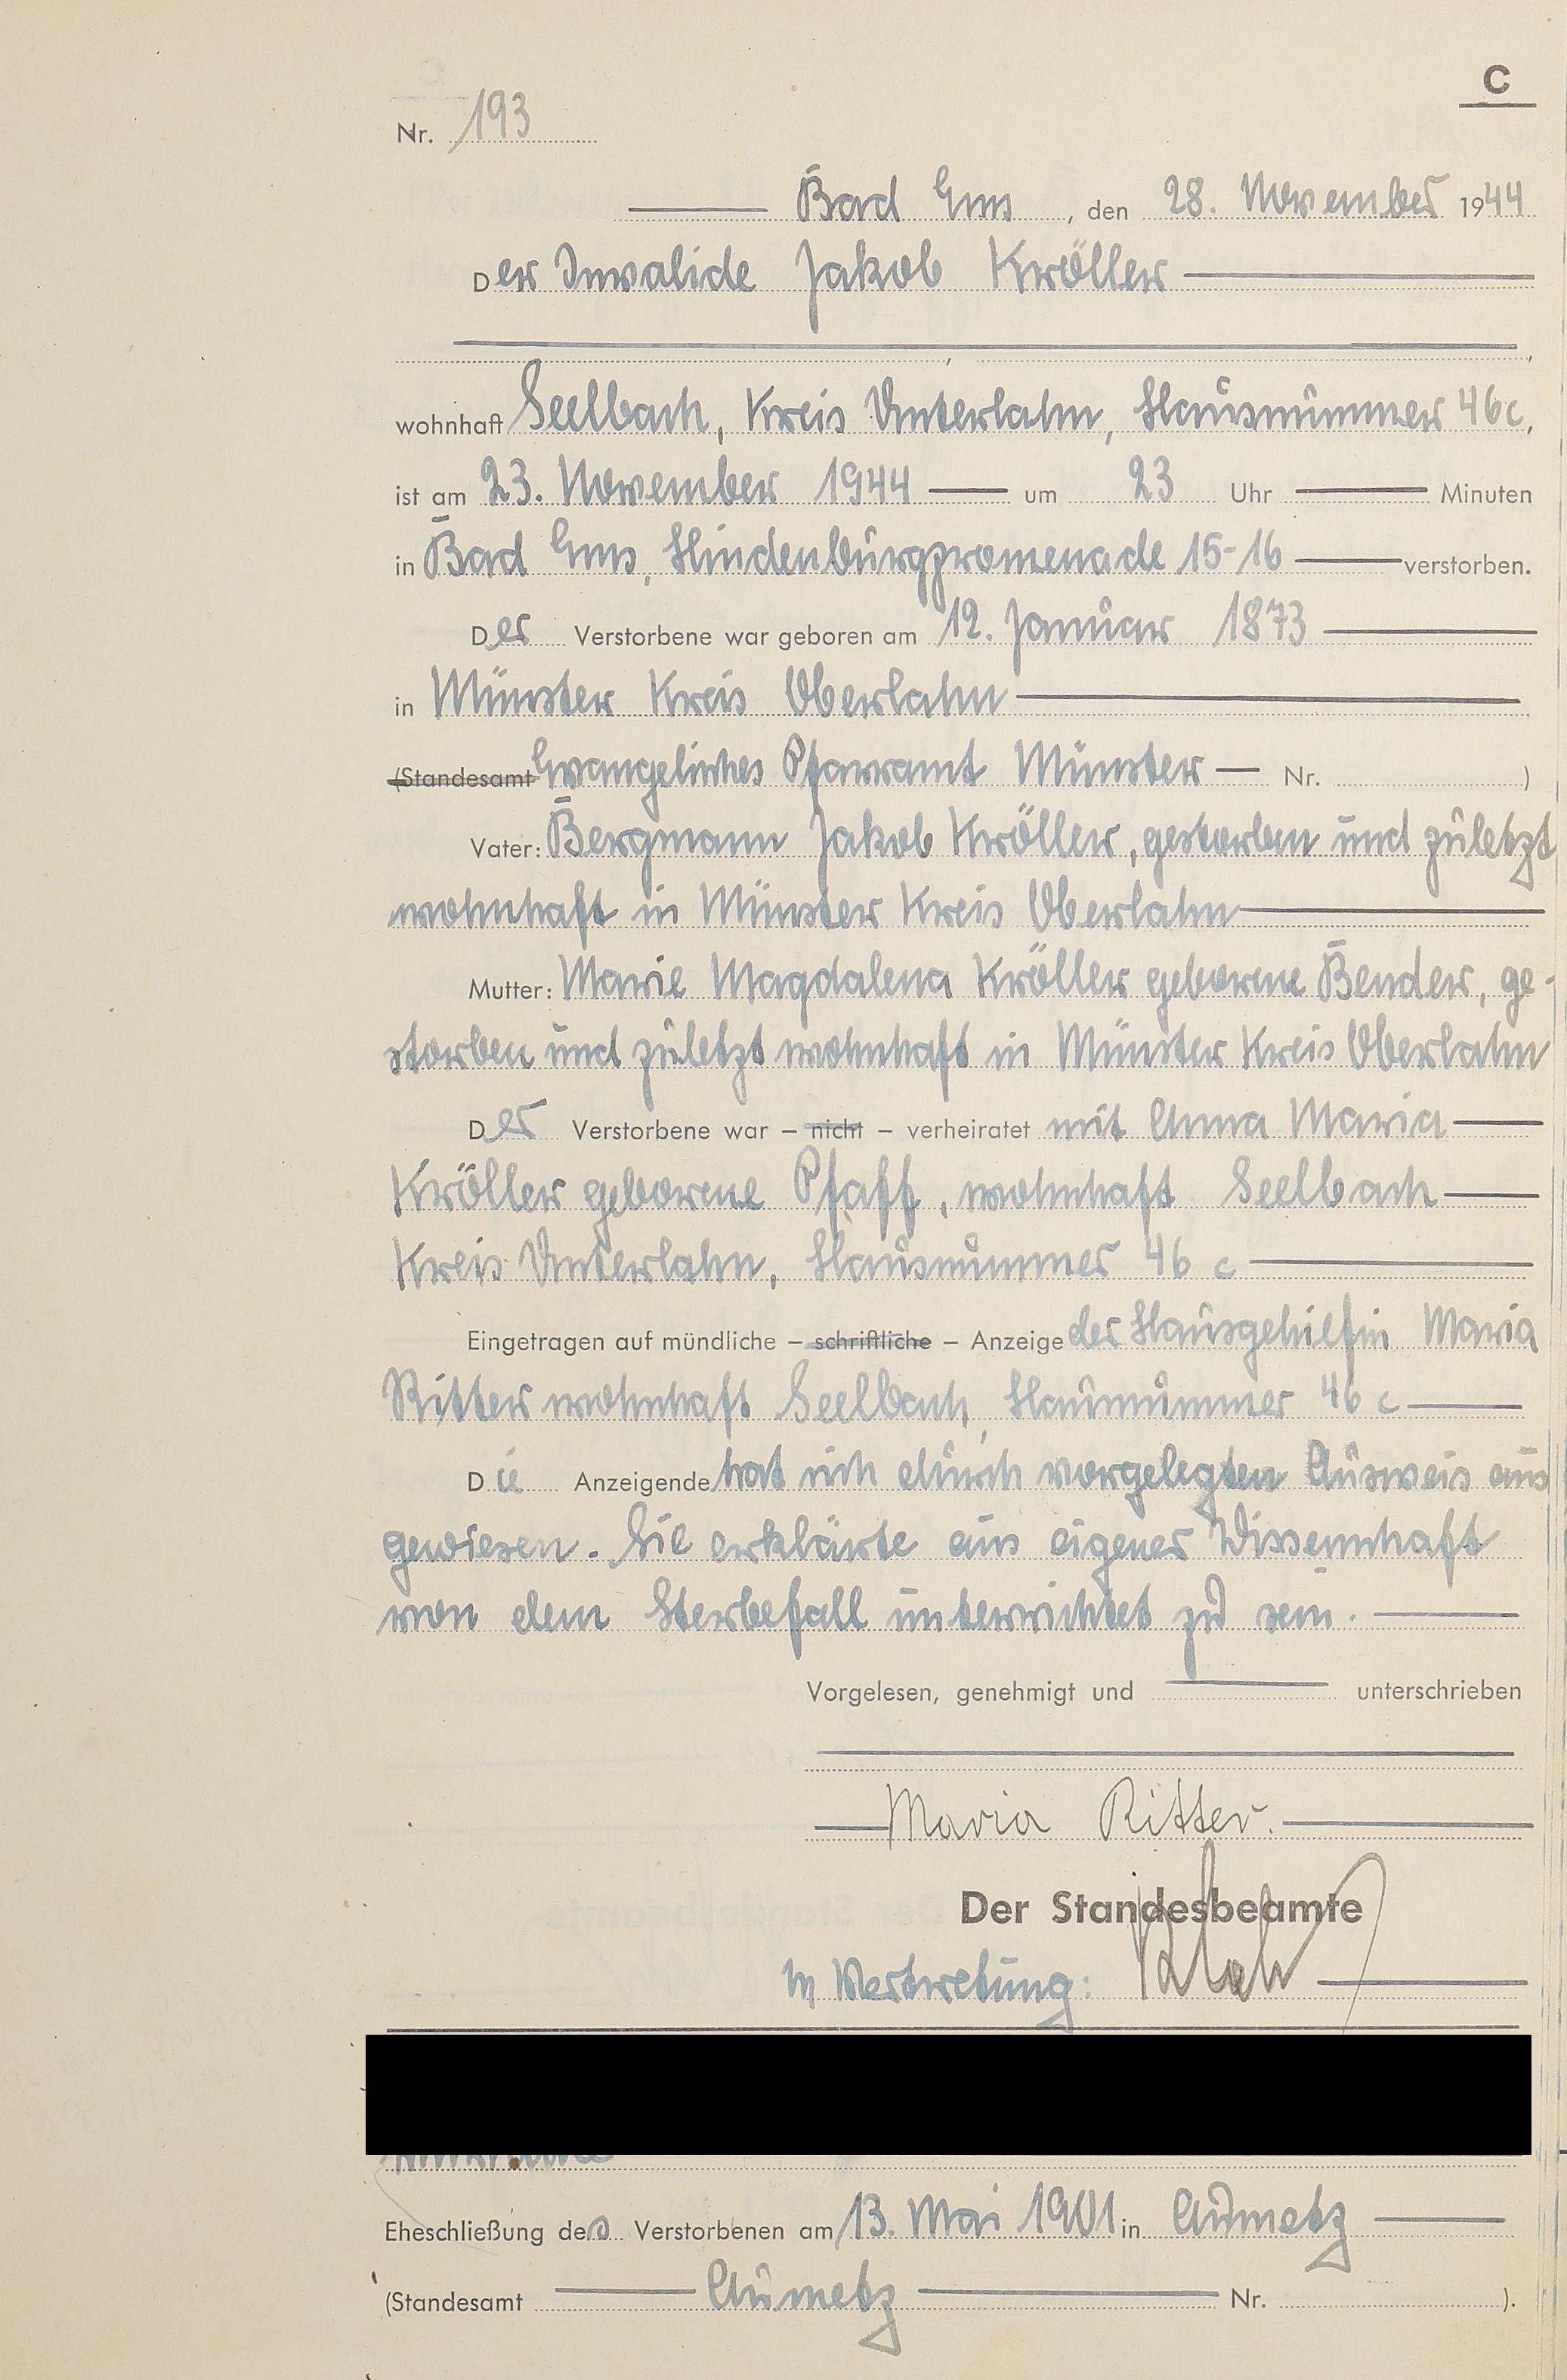 C
Nr. 193
Bad Ems, den 28. November 1944
Der Invalide Jakob Kröller
wohnhaft Seelbach, Kreis Unterlahn, Hausnummer 46c,
ist am 23. November 1944 um 23 Uhr Minuten
in Bad Ems, Hindenburgpromenade 15-16 verstorben.
Der Verstorbene war geboren am 12. Januar 1873
in Münster Kreis Oberlahn
(Standesamt Evangelisches Pfarramt Münster Nr. )
Vater: Bergmann Jakob Kröller, gestorben und zuletzt
wohnhaft in Münster Kreis Oberlahn
Mutter: Marie Magdalena Kröller geborene Bender, ge-
storben und zuletzt wohnhaft in Münster Kreis Oberlahn
Der Verstorbene war – nicht – verheiratet mit Anna Maria
Kröller geborene Pfaff, wohnhaft Seelbach
Kreis Unterlahn, Hausnummer 46 c
Eingetragen auf mündliche – schriftliche – Anzeige der Hausgehilfin Maria
Ritter wohnhaft Seelbach, Hausnummer 46 c
Die Anzeigende hat sich durch vorgelegten Ausweis aus
gewiesen. Sie erklärte aus eigener Wissenschaft
von dem Sterbefall unterrichtet zu sein.
Vorgelesen, genehmigt und unterschrieben
Maria Ritter.
Der Standesbeamte
In Vertretung:
Eheschließung des Verstorbenen am 13. Mai 1901 in Aumetz
(Standesamt Aumetz Nr. ).